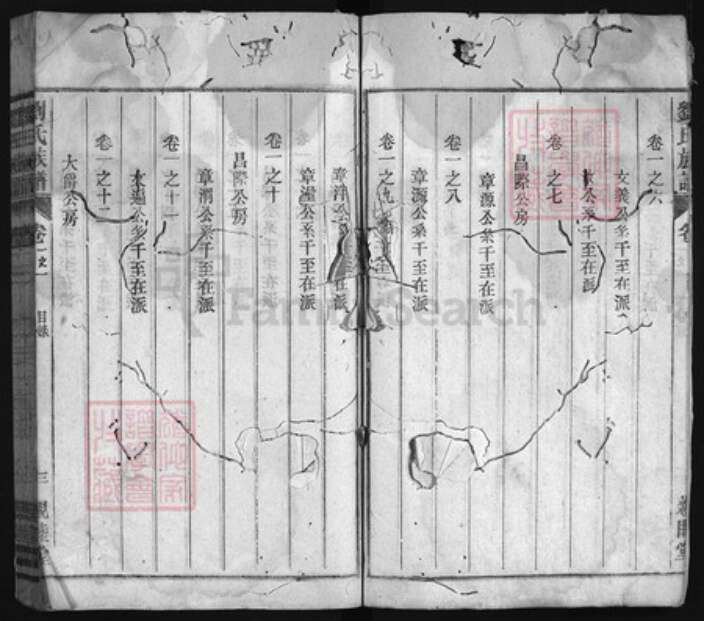 劉氏族譜
卷一之六
文義公糸干至在派
公糸干至在派
卷一之七
昌際公房
章源公糸干至在派
卷一之八
章源公糸干至在派
卷一之九
章洋公糸干至在派
章渥公糸干至在派
卷一之十
昌際公房
章渭公糸干至在派
卷一之十一
公糸干至在派
卷一之十二
大爵公房
劉氏族譜
卷一之一
目錄
三
親睦堂
FamilySearch